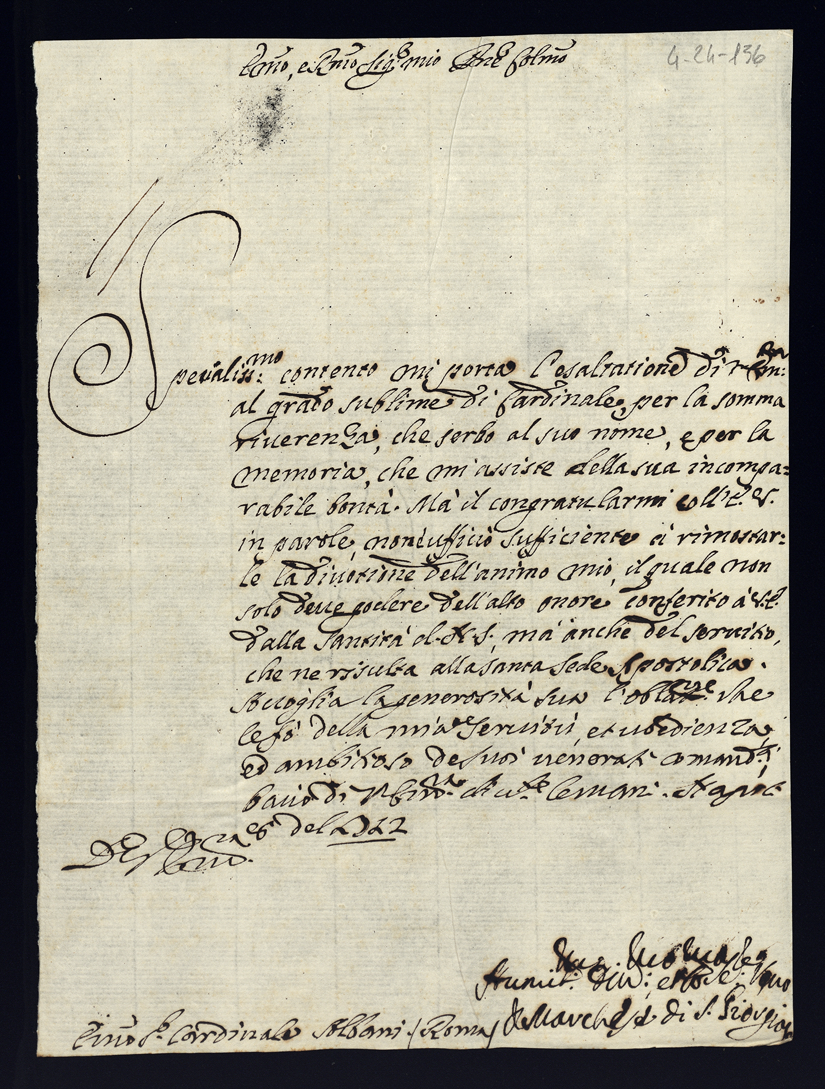 4-24-136
Emo, e Rmo Sigre mio Prne Colmo
Spetialissmo: contento mi porta l'esaltatione di V. Em:za
al grado sublime di Cardinale, per la somma
riverenza, che serbo al suo nome, e per la
memoria, che mi assiste della sua incompa=
rabile bontà. Mà il congratularmi coll'E. V.
in parole, non è ufficio sufficiente à rimostar=
le la divotione dell'animo mio, il quale non
solo deve godere dell'alto onore conferito à V. E.
dalla Santità di N. S., mà anche del servitio,
che ne risulta alla Santa Sede Apostolica.
Accoglia la generosità sua l'oblaze che
le fò della mia servitù, et ubedienza,
ed ambitioso de suoi venerati comandi,
bacio di V. Em.za le mani. Napoli
26 del 1712
Di V. Em.za
Humilmo Divmo
Il Marchese di S. Giorgio
Emo Sr. Cardinale Albani (Roma)